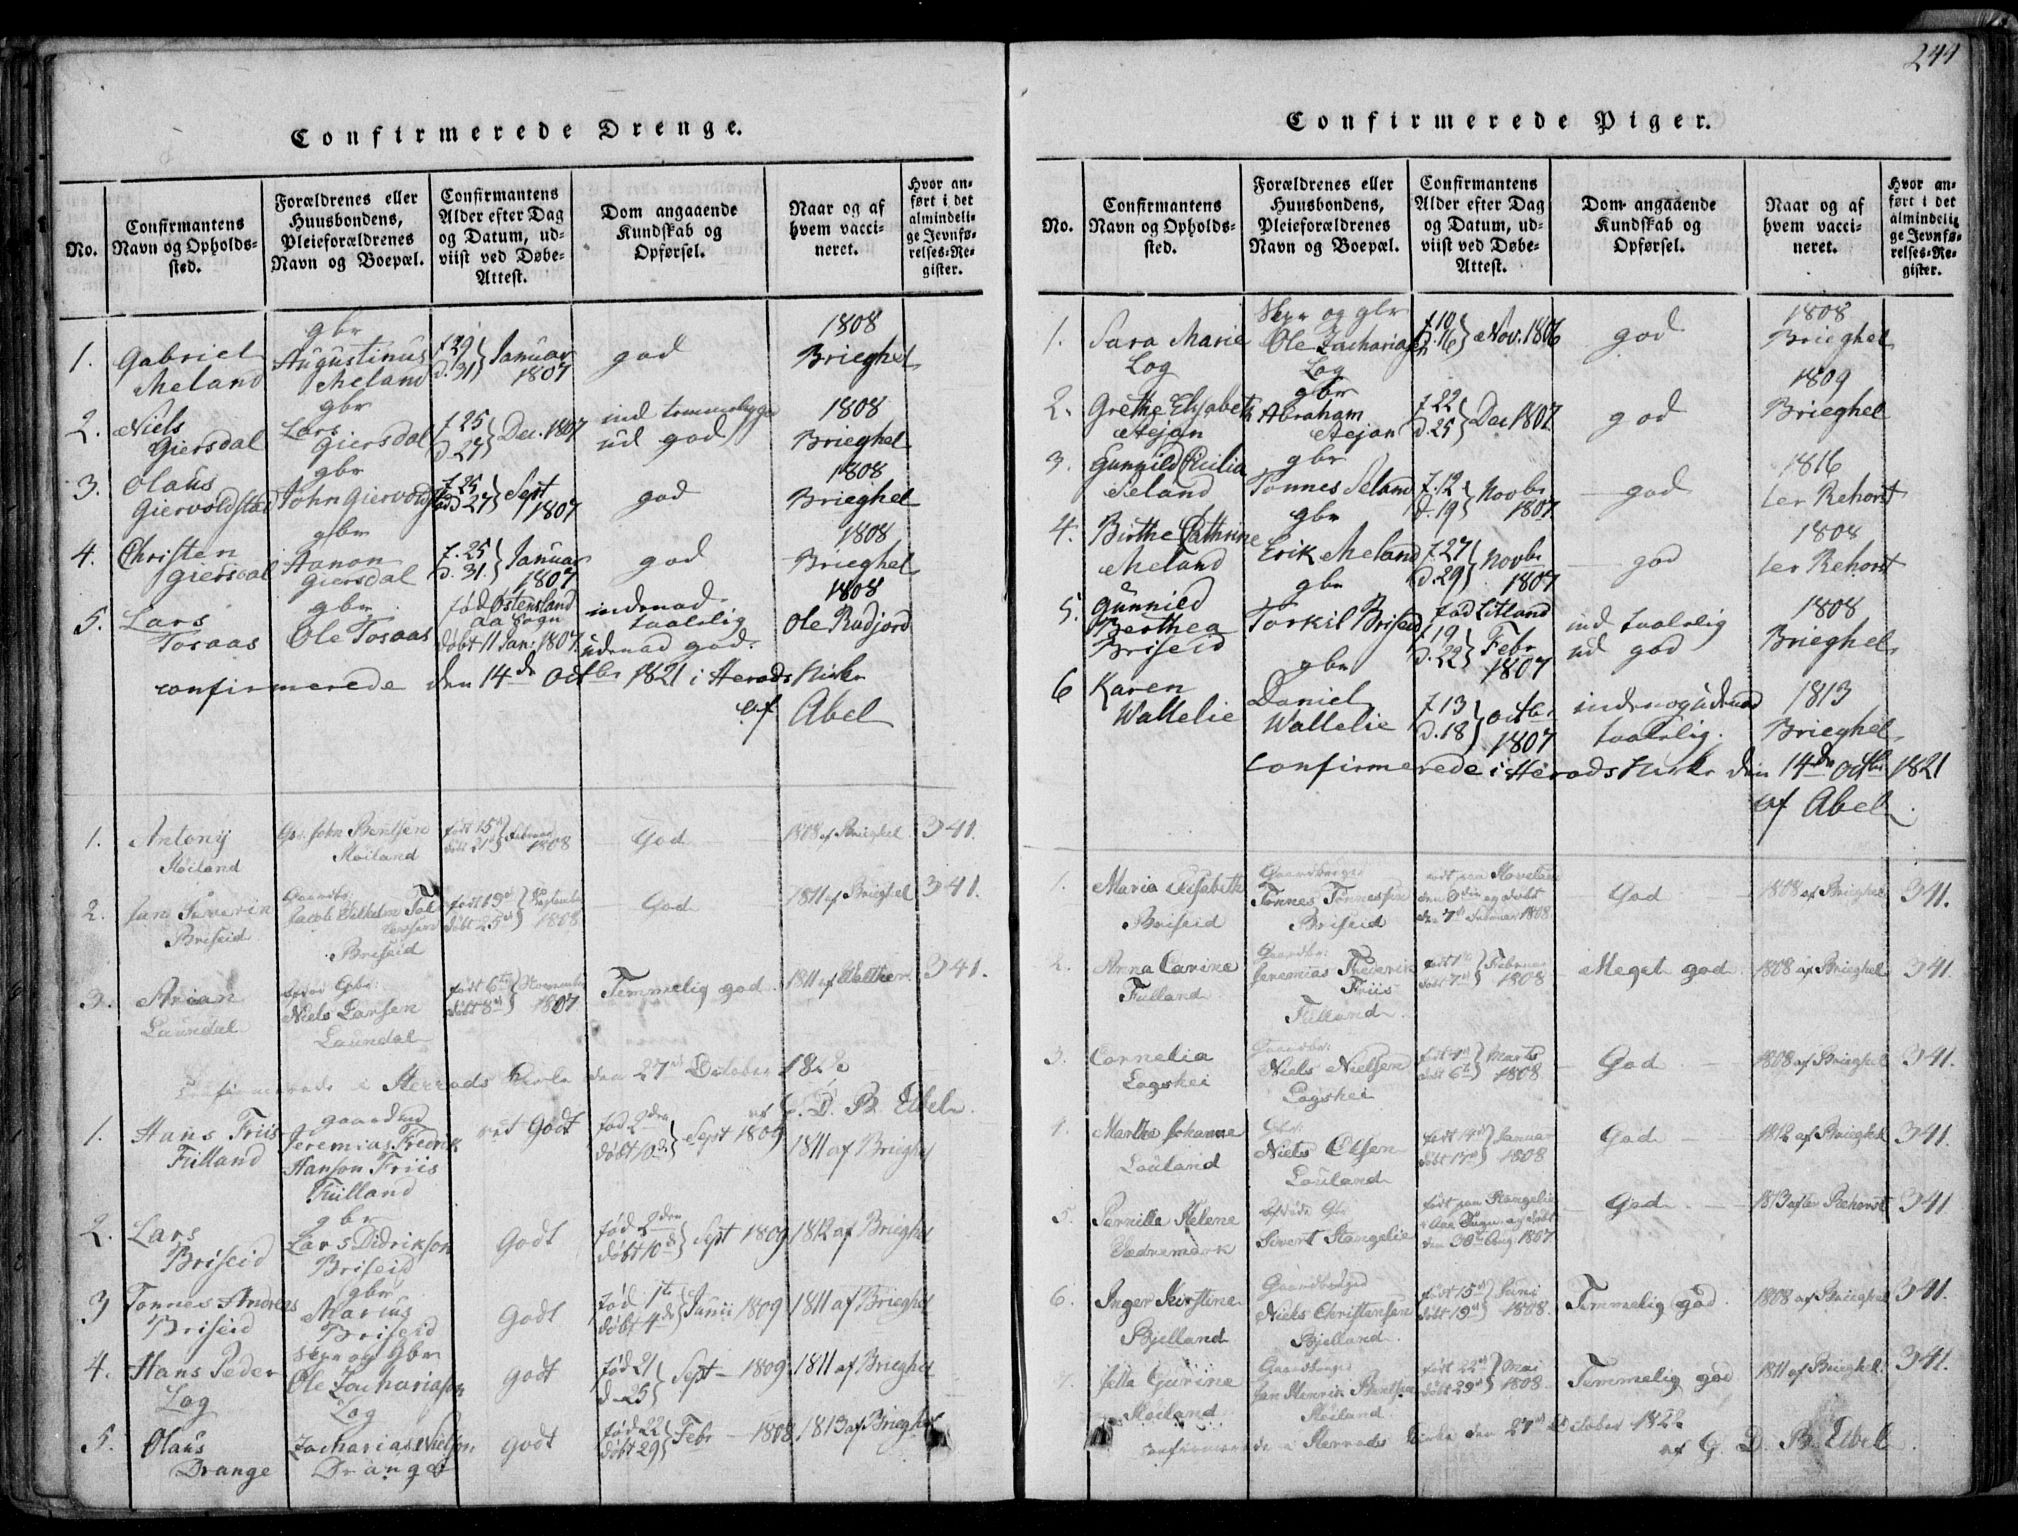 244
Confirmerede Drenge.
No.
Confirmantens Navn og Opholds-sted.
Forældrenes eller Huusbondens, Pleieforældrenes Navn og Boepæl.
Confirmantens Alder efter Dag og Datum, ud-viist ved Døbe-Attest.
Dom angaaende Kundskab og Opførsel.
Naar og af hvem vacci-neret.
Hvor an-ført i det almindeli-ge Jevnfø-relses-Re-gister.
1. Gabriel Meland gbr Augustinus Meland f. 29 D. 31 } Januar 1807 god 1808 Brieghel
2. Niels Giersdal gbr Lars Giersdal f. 25 D. 27 } Dec. 1807 ind ud god 1808 Brieghel
3. Olaus Giervoldstad gbr John f. 25 D 27 } Sept 1807 god 1808 Brieghel
4. Christen Giersdal gbr Hanon Giersdal f. 25 D. 31. } Januar 1807 god 1808 Brieghel
5. Lars Tosaas gbr Ole Tosaas fød Ostensland aa Sogn døbt 11 Jan. 1807. indvad taalelig udvad god. 1808 Ole Rudjord
confirmerede den 14de Octbr 1821 i Herads Kirke
af Abel
1. Antony Røiland Gbr. John Bentsen Røiland født 15de døbt 21de } Februar 1808 God 1808 af Brieghel 341.
2. Jan Severin Briseid Gaardbr: Jacob Wilhelm Briseid født 19de døbt 25de } September 1808 God 1811 af Brieghel 341.
3. Arian Laundal Gbr: Niels Larsen Laundal født 6te døbt 8de } November 1807 Temmelig god 1811 af 341.
Confirmerede i Herrads Kirke den 27de October 1822
af G. D. B. Abel
1. Hans Friis Fülland gaardbr Jeremias Fredrik Hanson Friis Fülland Godt fød 2den døbt 10de } Sept 1809 1811 af Brieghel
2. Lars Briseid gbr Lars Didrikson Briseid Godt fød 2den døbt 10de } Sept 1809 1812 af Brieghel
3 Tonnes Andreas Briseid gbr Marius Briseid Godt fød 1te døbt 4de } Junii 1809 1811 af Brieghel
4. Hans Peder Log Skpr og Gbr Ole Zachariason Log Godt fød 21 d 25 } Sept 1809 1811 af Brieghel
5. Olaus Drange Zacharias Nielsen Drange Godt fød 22 døbt 29 } Febr 1808 1813 af Brieghel
Confirmerede Piger.
No.
Confirmantens Navn og Opholds-sted.
Forældrenes eller Huusbondens, Pleieforældrenes Navn og Boepæl.
Confirmantens Alder efter Dag og Datum, ud-viist ved Døbe-Attest.
Dom angaaende Kundskab og Opførsel.
Naar og af hvem vacci-neret.
Hvor an-ført i det almindelig-ge Jevnfø-relses-Re-gister.
1. Sara Marie Log Skpr og gbr Ole Zachariasen Log f. 10 D. 16 } Nov. 1806 god 1808 Brieghel
2. Grethe Elisabeth Stejan gbr Abraham Stejan f. 22 D. 25 } Dec 1807 god 1809 Brieghel
3. Gunnild Cicilia Seland gbr Tonnes Seland f. 12 D. 19 } Novbr 1807 god 1816 Rehorst
4. Birthe Cathrine Meland gbr Erik Meland f. 27 D. 29 } Novbr 1807 god 1808 Rehorst
5. Gunnild Berthea Briseid gbr Torkil Briseid fød Litland f. 19 D. 22 } Febr 1807 ind taalelig ud god 1808 Brieghel
6 Karen Wallelie gbr Daniel Wallelie f. 13 D. 18 } Octbr 1807 indvaog udvad taalelig. 1813 Brieghel
confirmerede i Herads Kirke den 14de Octbr 1821
af Abel.
1. Maria Elisabeth Briseid Gaardbruger Tønnes Tønnessen Briseid født paa og døbt den 7de Februar 1808. God 1808 af Brieghel 341.
2. Anna Carine Fülland Gaardbr: Jeremias Frederik Friis Fülland født 1te døbt 7de } Februar 1808 Meget god 1808 af Brieghel 341.
3. Cornelia Logshei Gaardbr: Niels Nielsen Logshei født 4de døbt 6te } Marts 1808 God 1808 af Brieghel 341.
4. Marthe Johanne Louland Gbr: Niels Olsen Louland født 14de døbt 17de } Januar 1808 God 1812 af Brieghel 341.
5. Pernille Helene Gbr Sivert Stangelie født paa Stangelie i Aae Sogn og døbt den 30te Aug 1807 God 1813 af Rehorst 341
6. Inger Kirstine Bjelland Gaardbruger Niels Christensen Bjelland. født 15de døbt 19de } Juni 1808. Temmelig god 1808 af Brieghel 341.
7. Jella Gurine Røiland Gaardbruger Jan Henrik Bentsen Røiland født 22de døbt 29de } Mai 1808 Temmelig god 1811 af Brieghel. 341.
Confirmerede i Herrads Kirke den 27de October 1822
af G. D. B. Abel.